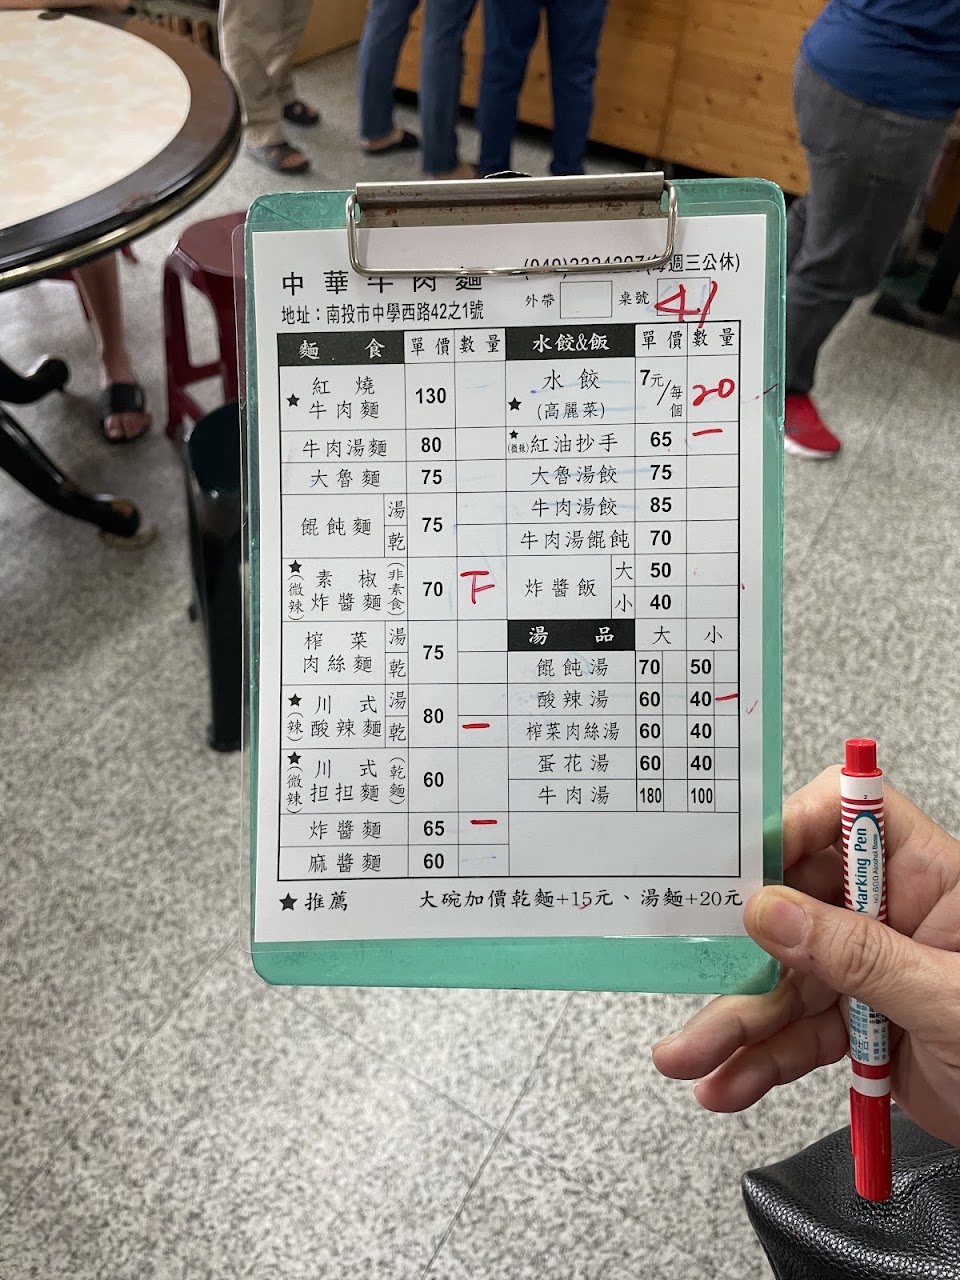 中華牛肉麵 (049)2324297(每週三公休)
地址：南投市中學西路42之1號 外帶 桌號 41
麵食 單價 數量 水餃&飯 單價 數量
★ 紅燒牛肉麵 130 ★ 水餃(高麗菜) 7元/每個 20
牛肉湯麵 80 ★(微辣) 紅油抄手 65 一
大魯麵 75 大魯湯餃 75
餛飩麵 湯 乾 75 牛肉湯餃 85
牛肉湯餛飩 70
★(微辣) 素椒炸醬麵 (非素食) 70 下 炸醬飯 大 50
小 40
榨菜肉絲麵 湯 乾 75 湯品 大 小
餛飩湯 70 50
★(辣) 川式酸辣麵 湯 乾 80 一 酸辣湯 60 40 一
榨菜肉絲湯 60 40
★(微辣) 川式担担麵 (乾麵) 60 蛋花湯 60 40
牛肉湯 180 100
炸醬麵 65 一
麻醬麵 60
★推薦 大碗加價乾麵+15元、湯麵+20元
Marking Pen
NO.600 Alcohol Base